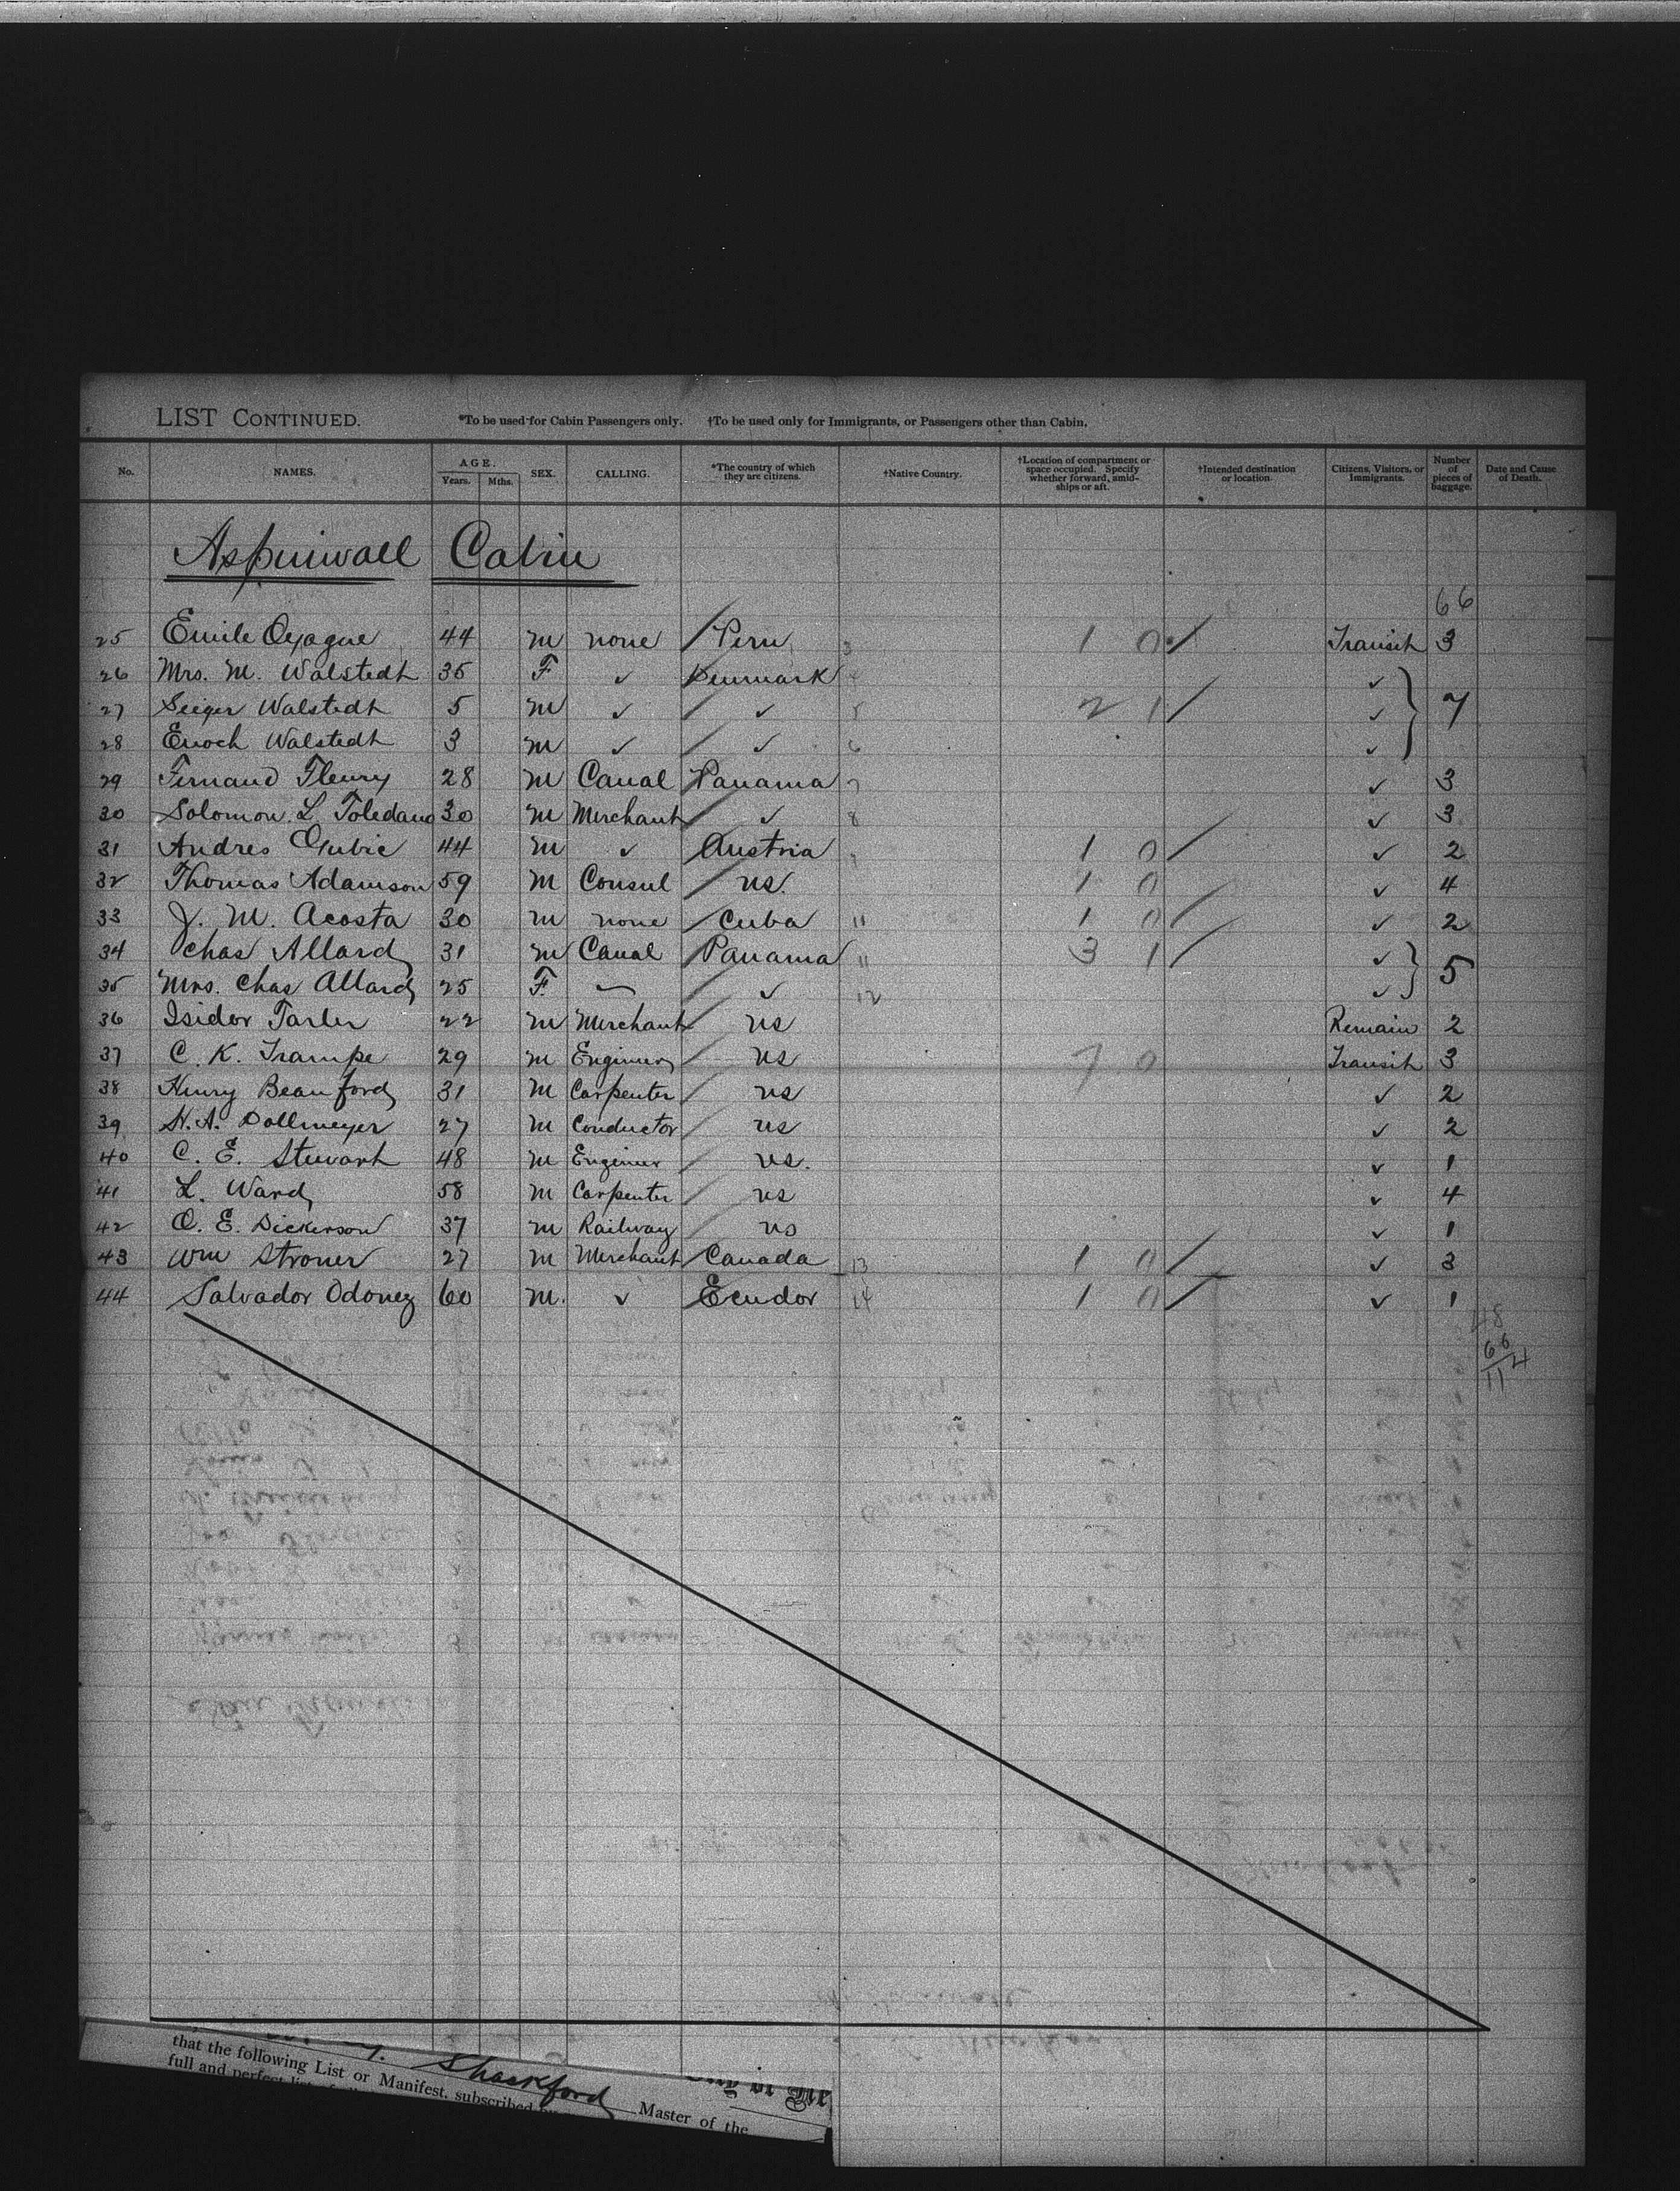 LIST CONTINUED. *To be used for Cabin Passengers only. †To be used only for Immigrants, or Passengers other than Cabin.
No. NAMES. AGE. Years. Mths. SEX. CALLING. *The country of which they are citizens. †Native Country. †Location of compartment or space occupied. Specify whether forward, amidships or aft. †Intended destination or location. Citizens, Visitors, or Immigrants. Number of pieces of baggage. Date and Cause of Death.
Aspinwall Cabin
66
25 Emile Oyague 44 M none Peru 3 1 0 Transit 3
26 Mrs. M. Walstedt 35 F ✓ Denmark 4 ✓
27 Seiger Walstedt 5 M ✓ ✓ 5 2 1 ✓ 7
28 Enoch Walstedt 3 M ✓ ✓ 6 ✓
29 Fernand Fleury 28 M Canal Panama 7 ✓ 3
30 Solomon L Toledano 30 M Merchant ✓ 8 ✓ 3
31 Andres 44 M ✓ Austria 9 1 0 ✓ 2
32 Thomas Adamson 59 M Consul US. 1 0 ✓ 4
33 J. M. Acosta 30 M none Cuba 11 1 0 ✓ 2
34 Chas Allard 31 M Canal Panama 11 3 1 ✓
35 Mrs. Chas Allard 25 F. — ✓ 12 ✓ 5
36 Isidor Tarler 22 M Merchant US Remain 2
37 C. K. Trampe 29 M Engineer US 7 0 Transit 3
38 Henry Beauford 31 M Carpenter US ✓ 2
39 H. A. Dollmeyer 27 M Conductor US ✓ 2
40 C. E. Stewart 48 M Engineer US. ✓ 1
41 L. Ward 58 M Carpenter US ✓ 4
42 O. E. Dickerson 37 M Railway US ✓ 1
43 Wm Stroner 27 M Merchant Canada 13 1 0 ✓ 3
44 Salvador Odonez 60 M. ✓ Ecudor 14 1 0 ✓ 1
48
66
114
Shackford
that the following List or Manifest, subscribed Master of the
full and perfect list